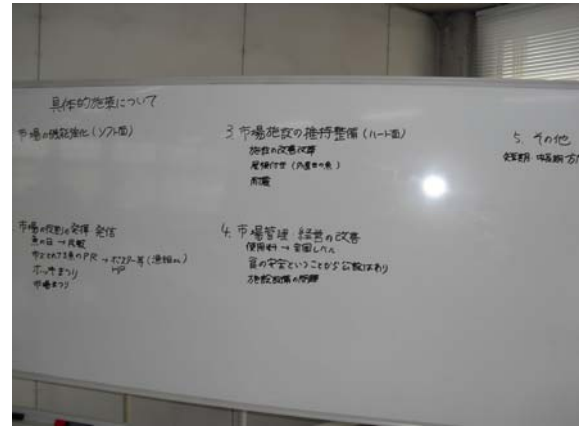 具体的施策について
市場の機能強化(ソフト面)
市場の役割の発揮 発信
魚の日→
市でとれる魚のPR→ポスター等(漁組etc)
HP
ホッキまつり
市場まつり
3. 市場施設の維持整備(ハード面)
施設の改善改革
屋根付せ
耐震
4. 市場管理 経営の改善
使用料→全国レベル
食の安全ということから公設はあり
施設設備の問題
5. その他
短期 中長期